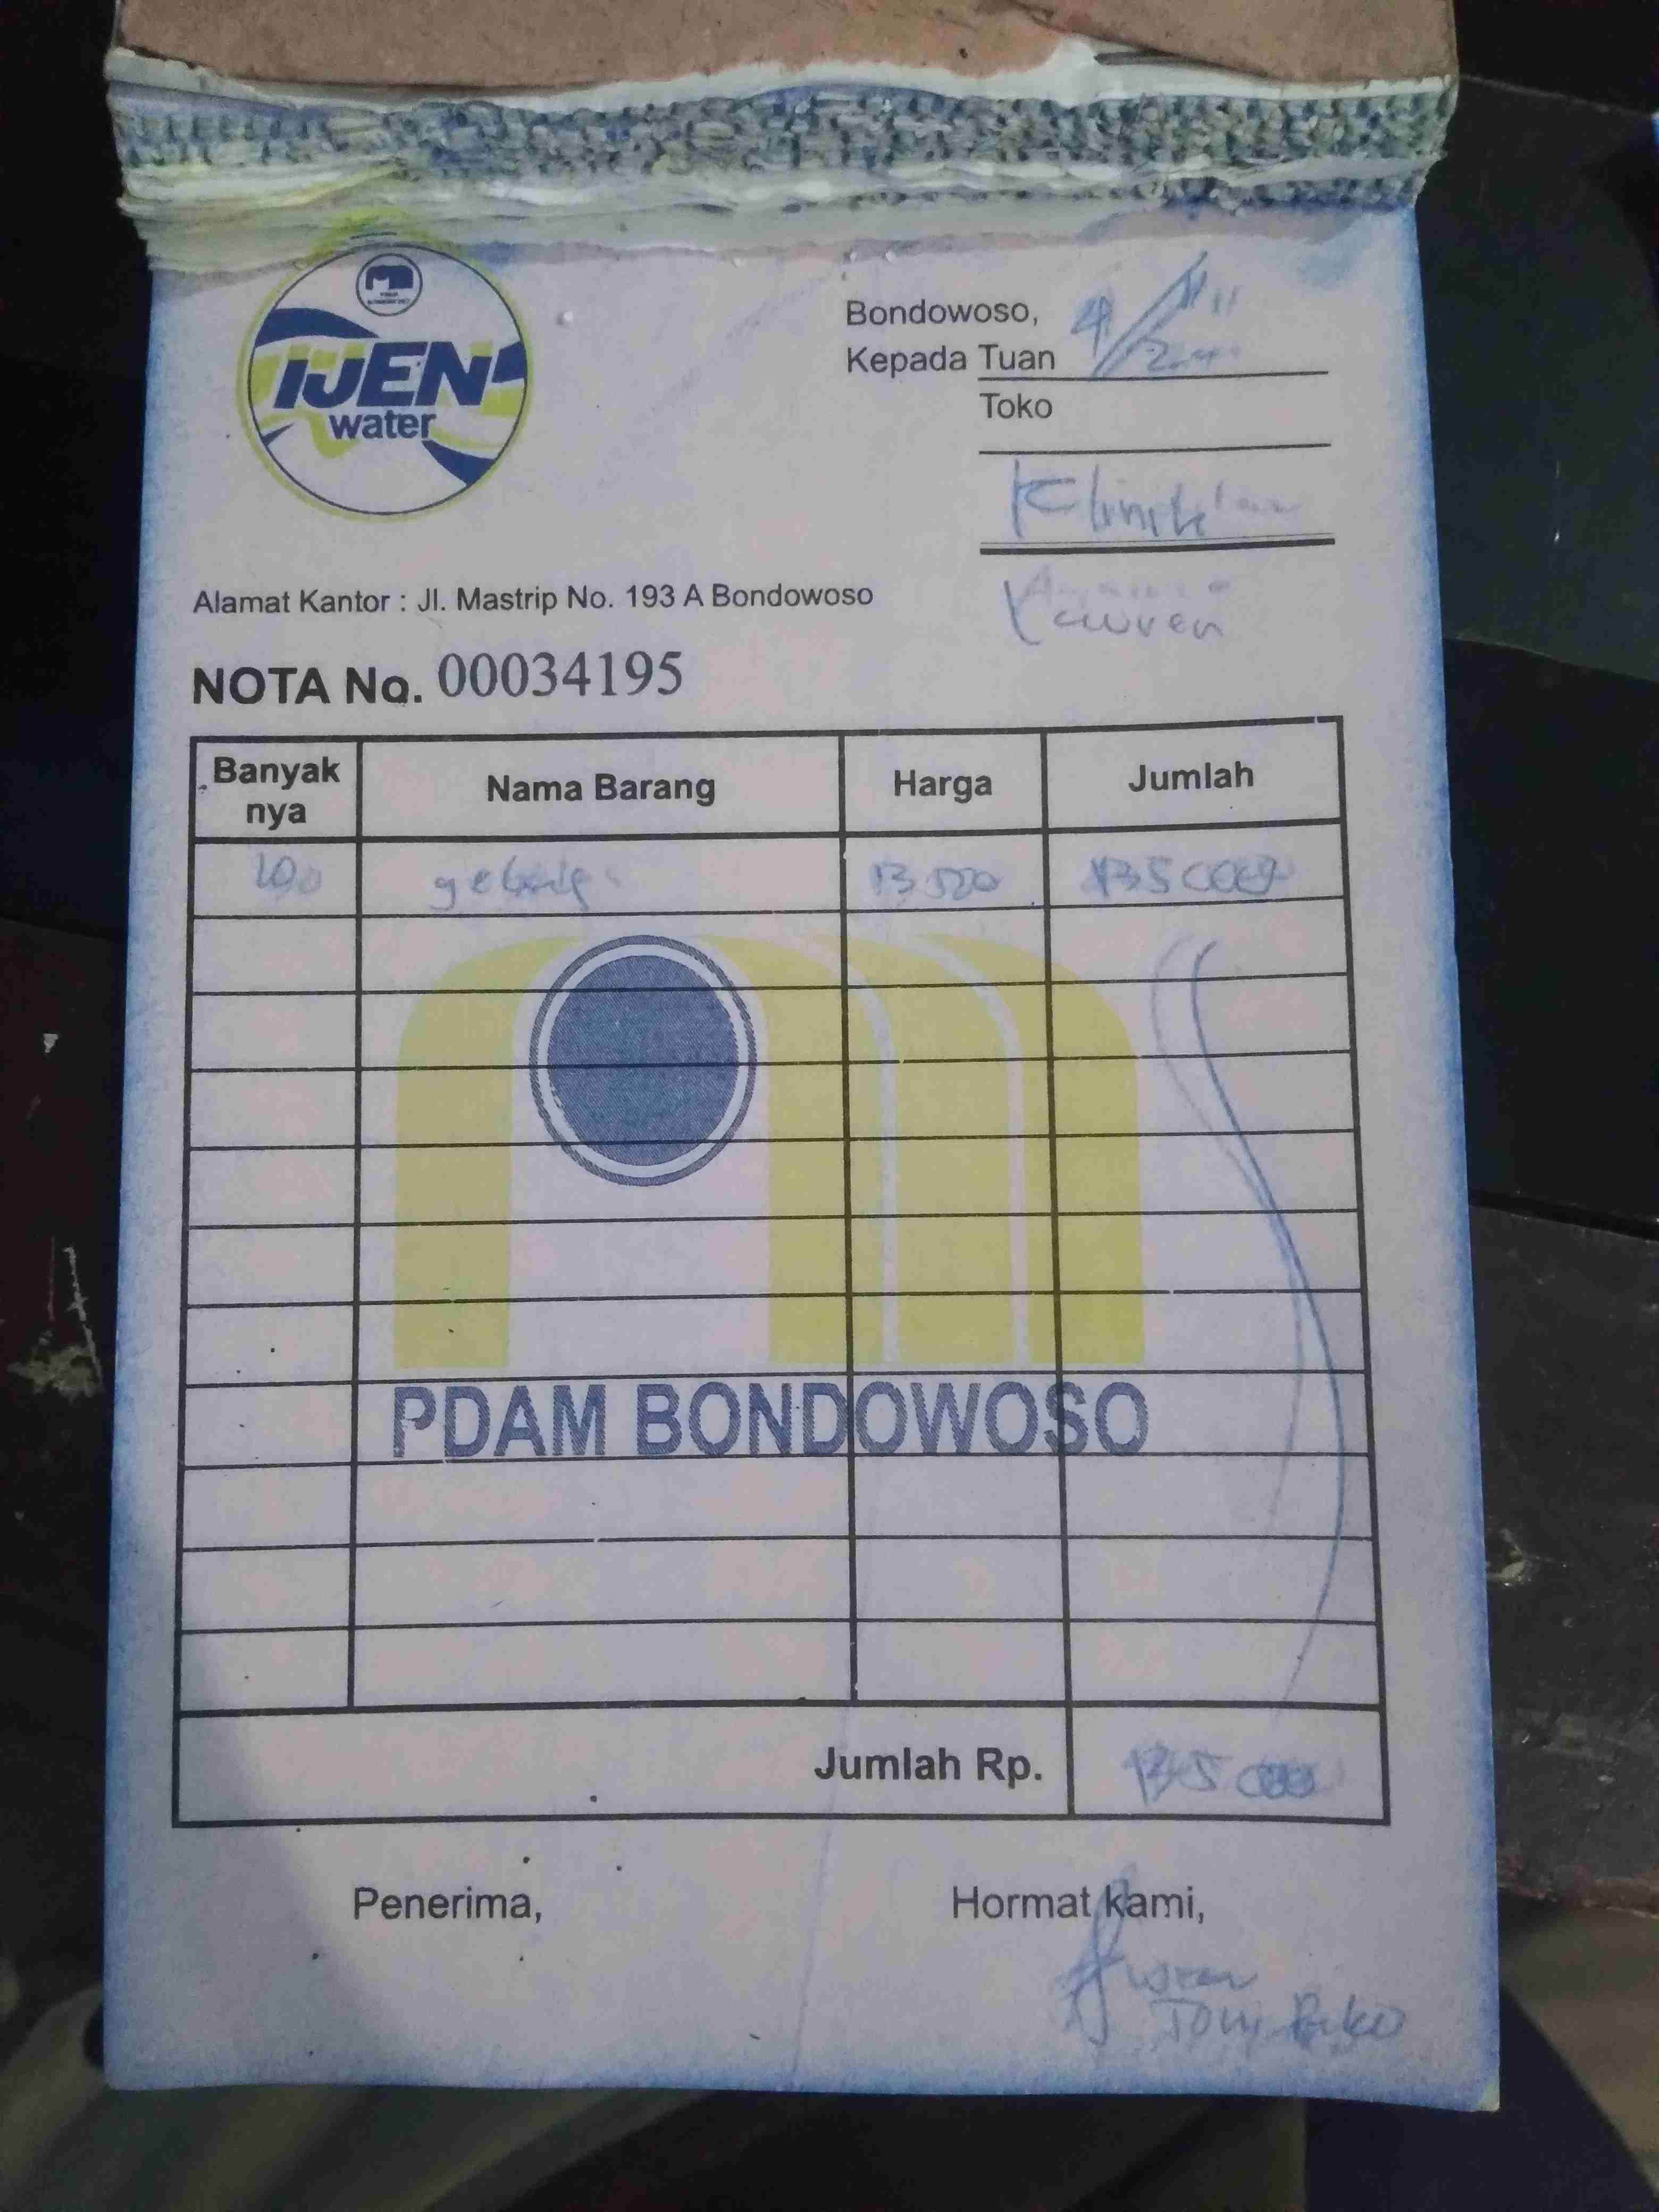 IJEN
water
Bondowoso,
Kepada Tuan
Toko
Klinik
Kawren
Alamat Kantor : Jl. Mastrip No. 193 A Bondowoso
NOTA No. 00034195
Banyak nya Nama Barang Harga Jumlah
13 500 135 000
PDAM BONDOWOSO
Jumlah Rp. 135 000
Penerima, Hormat kami,